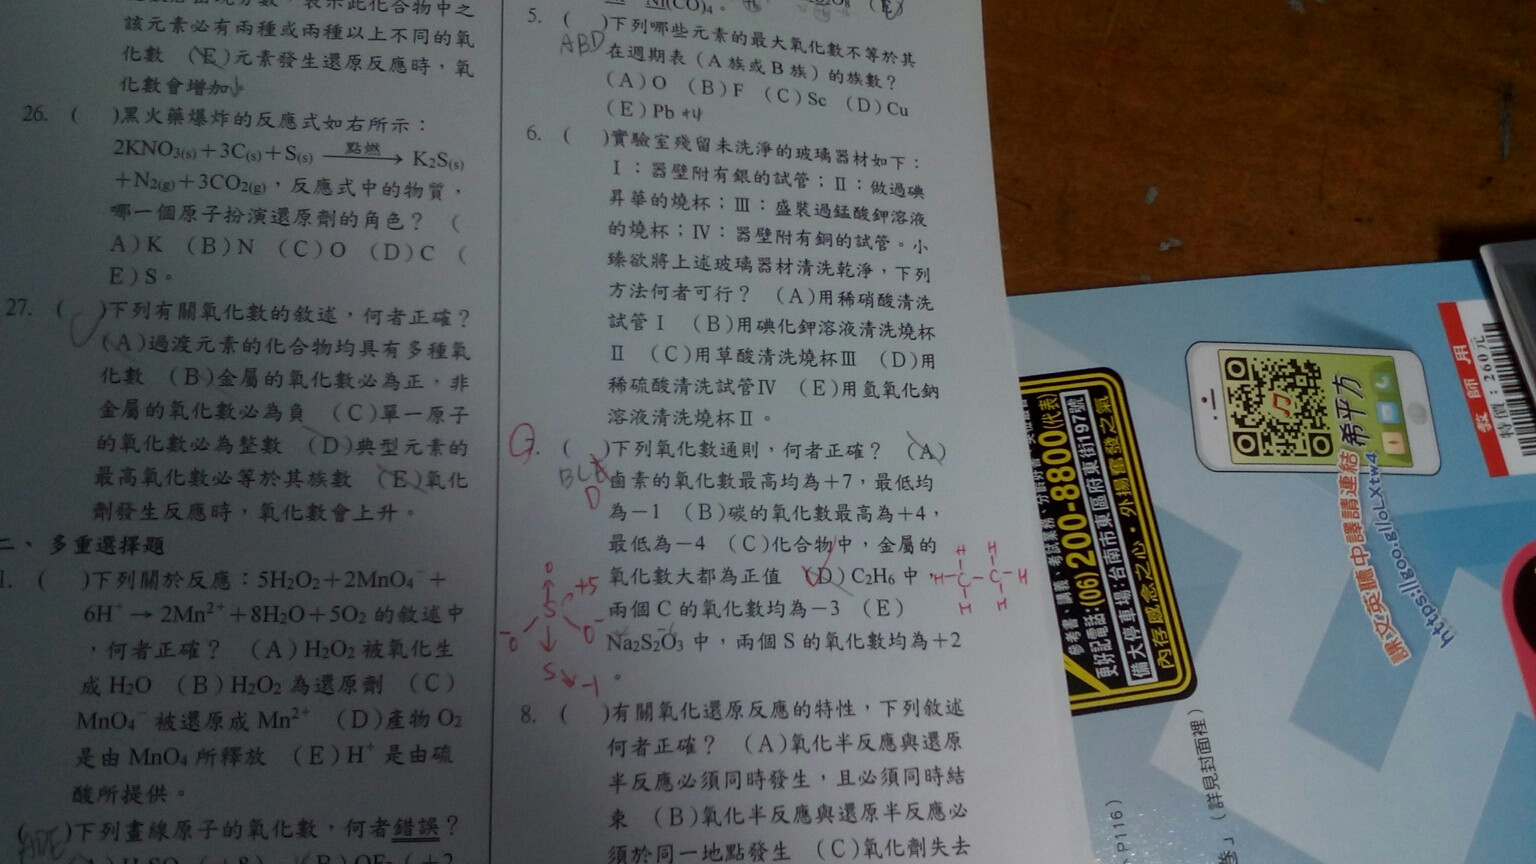 該元素必有兩種或兩種以上不同的氧
化數 (E)元素發生還原反應時，氧
化數會增加
26. ( )黑火藥爆炸的反應式如右所示：
2KNO3(s)+3C(s)+S(s) 點燃→ K2S(s)
+N2(g)+3CO2(g)，反應式中的物質，
哪一個原子扮演還原劑的角色？ (
A)K (B)N (C)O (D)C (
E)S。
27. ( )下列有關氧化數的敘述，何者正確？
(A)過渡元素的化合物均具有多種氧
化數 (B)金屬的氧化數必為正，非
金屬的氧化數必為負 (C)單一原子
的氧化數必為整數 (D)典型元素的
最高氧化數必等於其族數 (E)氧化
劑發生反應時，氧化數會上升。
二、多重選擇題
1. ( )下列關於反應：5H2O2+2MnO4⁻+
6H⁺→2Mn²⁺+8H2O+5O2 的敘述中
，何者正確？ (A)H2O2 被氧化生
成 H2O (B)H2O2 為還原劑 (C)
MnO4⁻ 被還原成 Mn²⁺ (D)產物 O2
是由 MnO4 所釋放 (E)H⁺ 是由硫
酸所提供。
ADE )下列畫線原子的氧化數，何者錯誤？
Ni(CO)4。 (E)
5. ( )下列哪些元素的最大氧化數不等於其
ABD
在週期表（A 族或 B 族）的族數？
(A)O (B)F (C)Sc (D)Cu
(E)Pb +4
6. ( )實驗室殘留未洗淨的玻璃器材如下：
Ⅰ：器壁附有銀的試管；Ⅱ：做過碘
昇華的燒杯；Ⅲ：盛裝過錳酸鉀溶液
的燒杯；Ⅳ：器壁附有銅的試管。小
臻欲將上述玻璃器材清洗乾淨，下列
方法何者可行？ (A)用稀硝酸清洗
試管Ⅰ (B)用碘化鉀溶液清洗燒杯
Ⅱ (C)用草酸清洗燒杯Ⅲ (D)用
稀硫酸清洗試管Ⅳ (E)用氫氧化鈉
溶液清洗燒杯Ⅱ。
7. ( )下列氧化數通則，何者正確？ (A)
BC
D
鹵素的氧化數最高均為+7，最低均
為-1 (B)碳的氧化數最高為+4，
最低為-4 (C)化合物中，金屬的
氧化數大都為正值 (D)C2H6 中，
兩個 C 的氧化數均為-3 (E)
Na2S2O3 中，兩個 S 的氧化數均為+2
。
H H
H-C-C-H
H H
O
S +5
-O O-
S -1
8. ( )有關氧化還原反應的特性，下列敘述
何者正確？ (A)氧化半反應與還原
半反應必須同時發生，且必須同時結
束 (B)氧化半反應與還原半反應必
須於同一地點發生 (C)氧化劑失去
更好記電話:(06)200-8800(代表)
備大停車場:台南市東區府東街197號
內存感念之心‧外揚
希平方
課文英聽中譯請連結
https://goo.gl/oLXtw4
教師用
特價：260元
（詳見封面裡）
、P116）